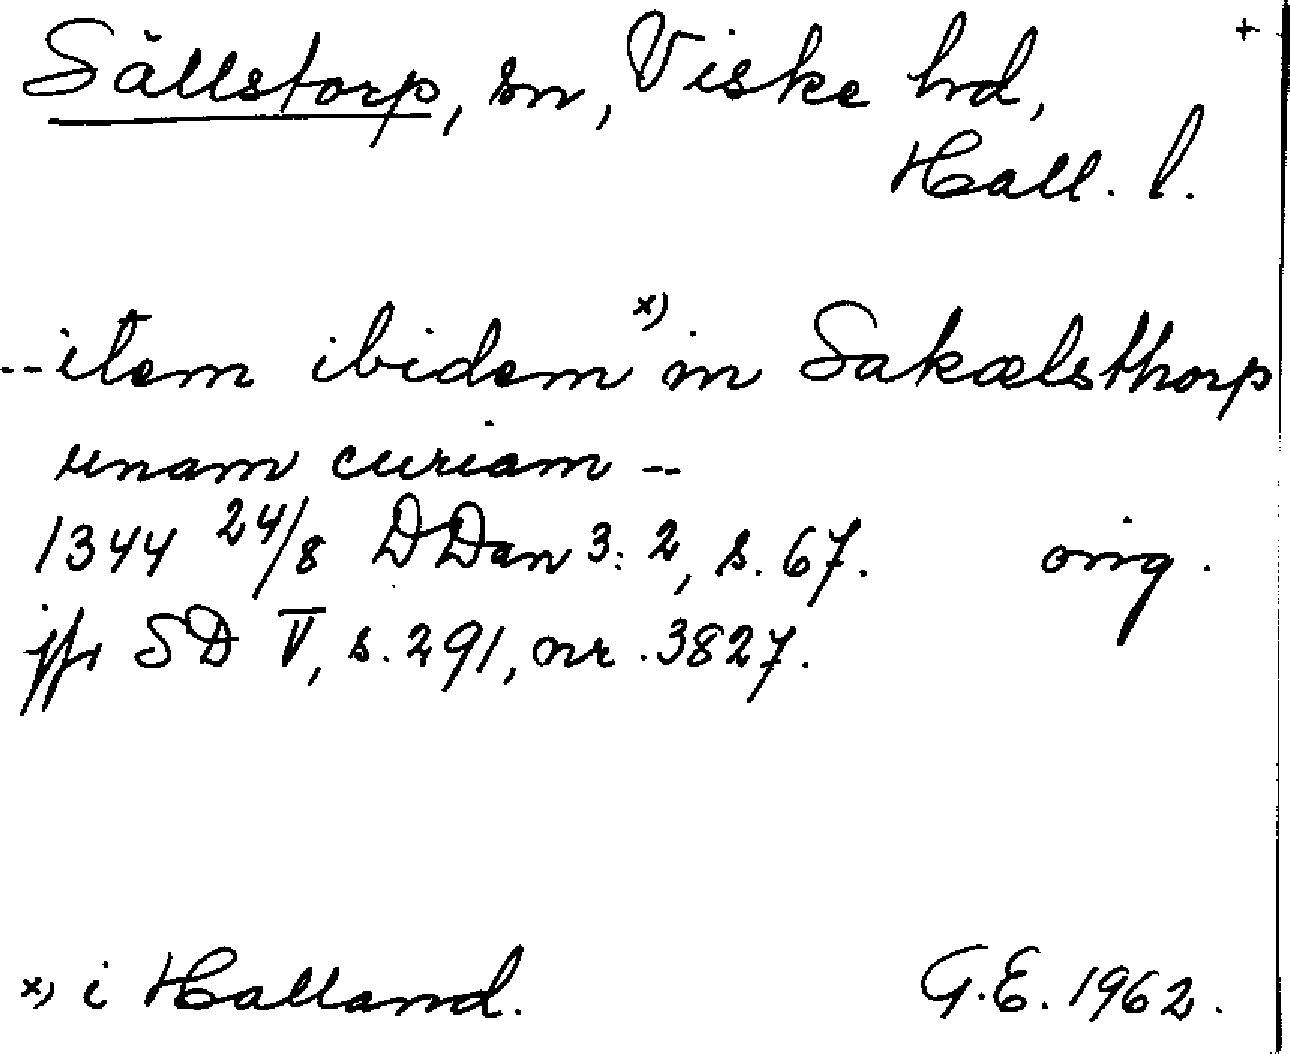 Sällstorp, sn, Viske hd, +
Hall. l.
--item ibidem x) in Sakælsthorp
unam curiam --
1344 24/8 DDan 3: 2, s. 67. orig.
jfr SD V, s. 291, nr. 3827.
x) i Halland. G.E. 1962.